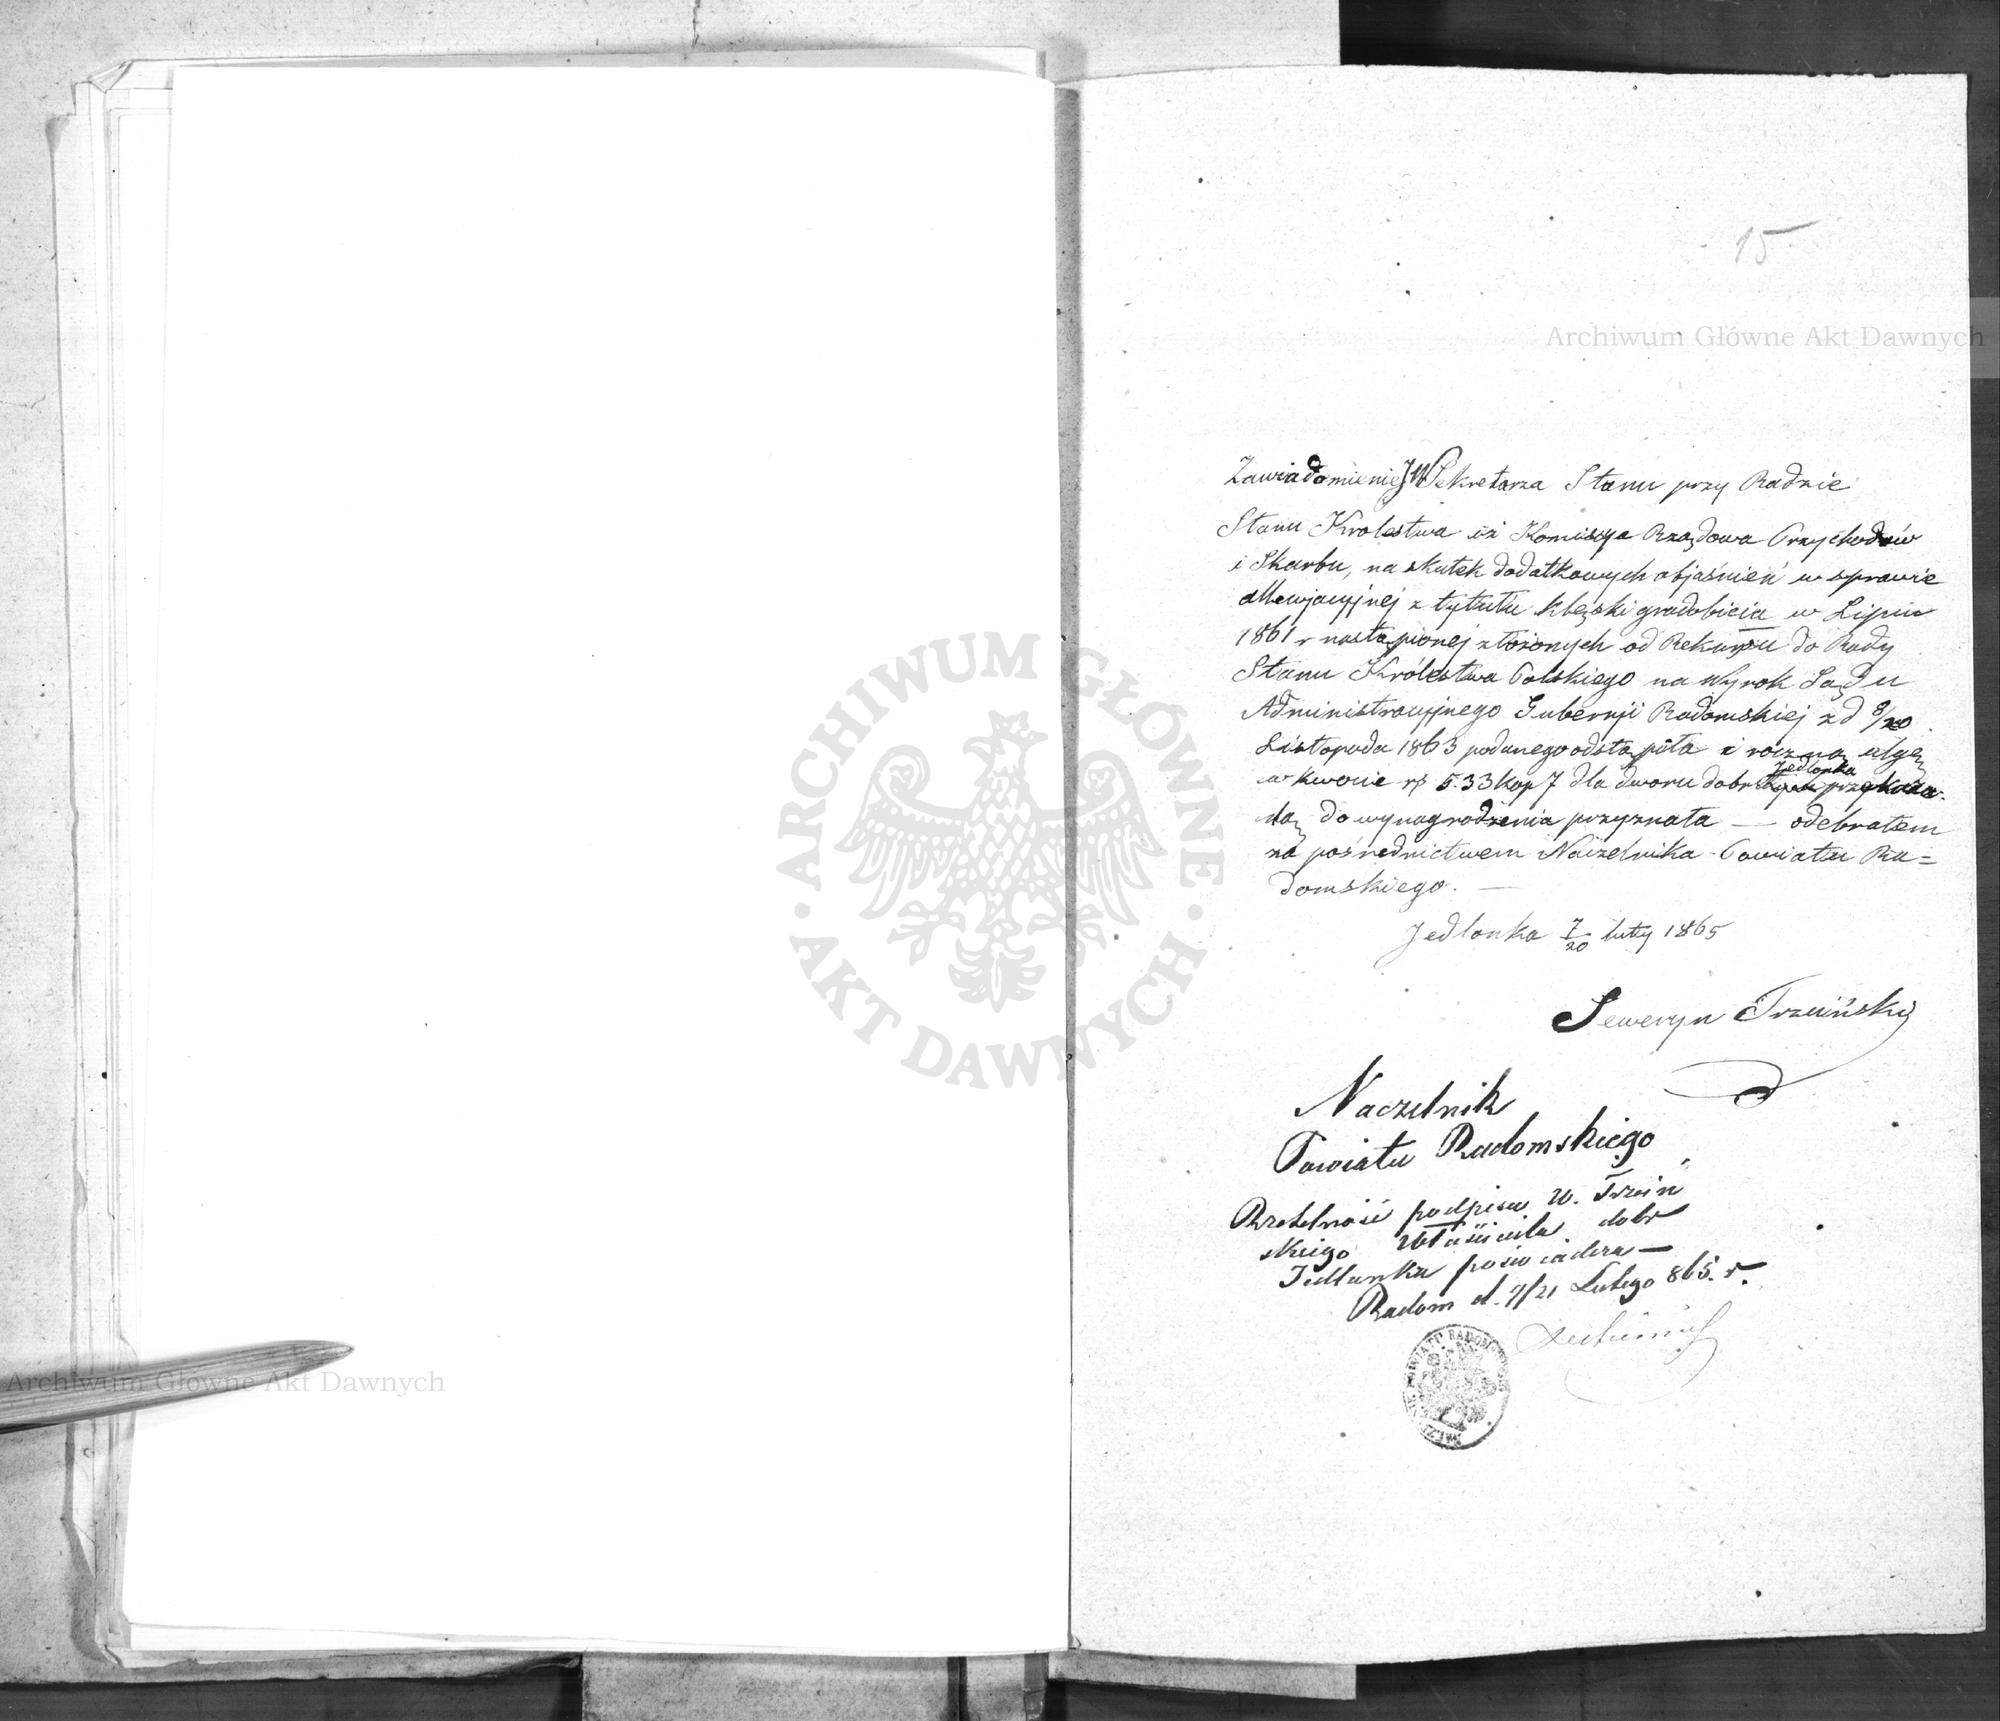 15
Archiwum Główne Akt Dawnych
Zawiadomienie JW Sekretarza Stanu przy Radzie
Stanu Krolestwa iż Komissya Rządowa Przychodów
i Skarbu, na skutek dodatkowych objaśnień w sprawie
allewjacyjnej z tytułu klęski gradobicia w Lipcu
1861 r nastąpionej złożonych od Rekursu do Rady
Stanu Królestwa Polskiego na Wyrok Sądu
Administracyjnego Gubernji Radomskiej z d 8/20
Listopada 1863 podanego odstąpiła i roczną ulgę
w kwocie rs 533 kop 7 dla dworu dobr Jedlonka
do wynagrodzenia przyznała — odebrałem
za pośrednictwem Naczelnika Powiatu Ra=
domskiego. —
Jedlonka 7/20 luty 1865
Seweryn Trzciński
Naczelnik
Powiatu Radomskiego
Rzetelność podpisu W. Trzciń
skiego Właściciela dobr
Jedlanka poświadcza—
Radom d. 9/21 Lutego 865. r.
ARCHIWUM GŁÓWNE
AKT DAWNYCH
Archiwum Główne Akt Dawnych